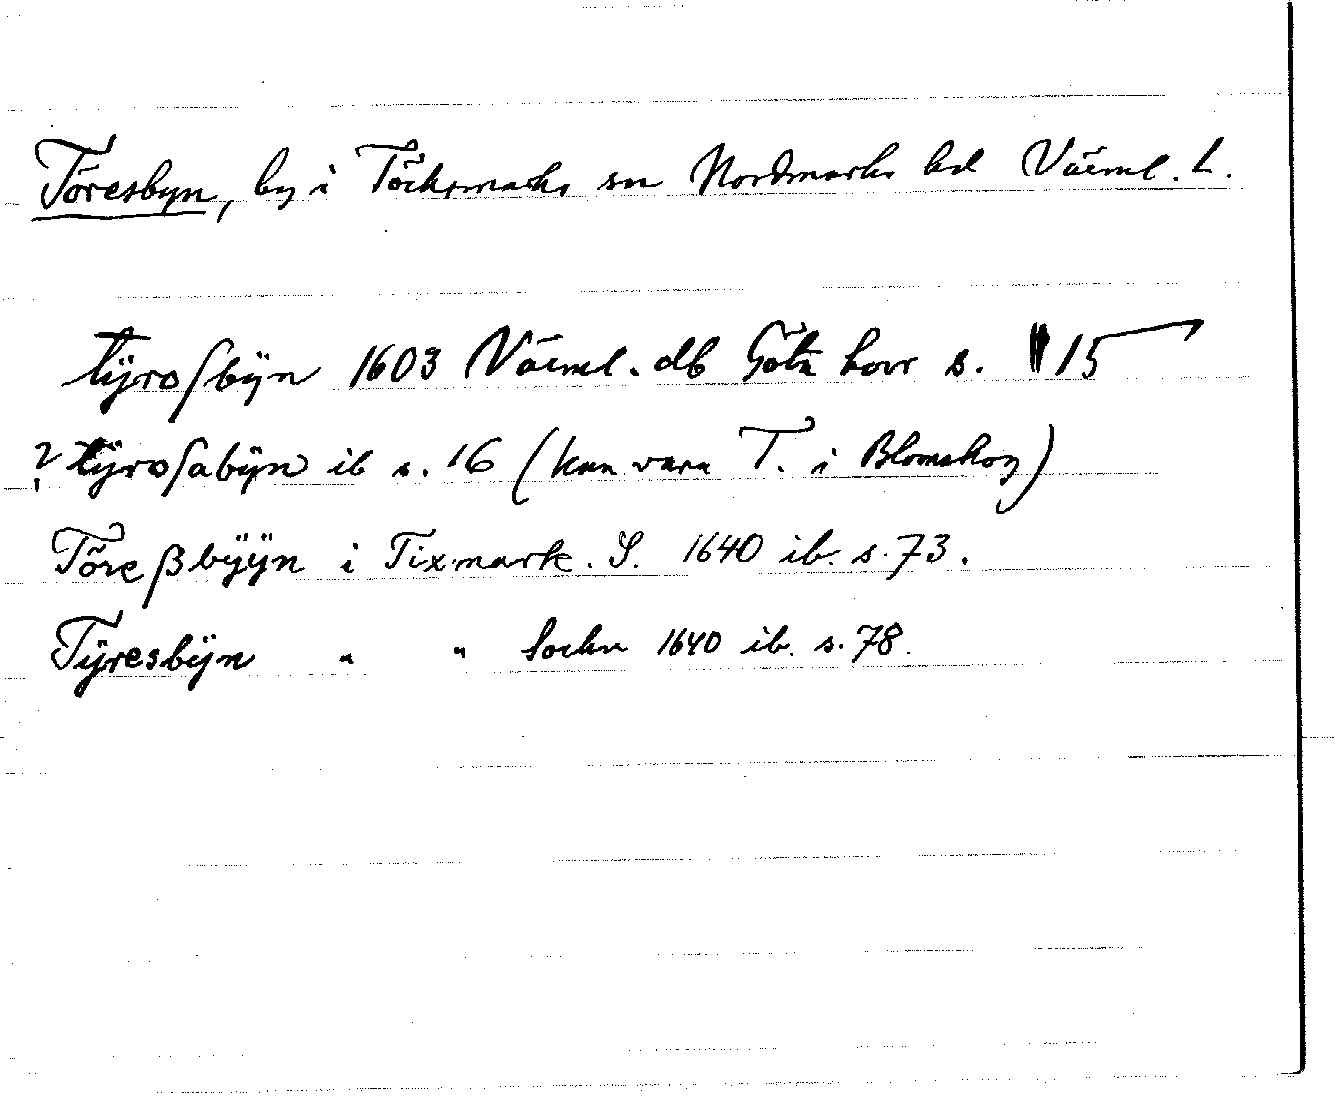 Töresbyn, by i Töcksmarks sn Nordmarks hd Värml. L.
tÿrosbÿn 1603 Värml. db Göta hovr s. 15
? tÿrosabÿn ib s. 16 (kan vara T. i Blomskog)
Töreßbÿÿn i Tixmark. S. 1640 ib. s. 73.
Tÿresbÿn " " Sochn 1640 ib. s. 78.